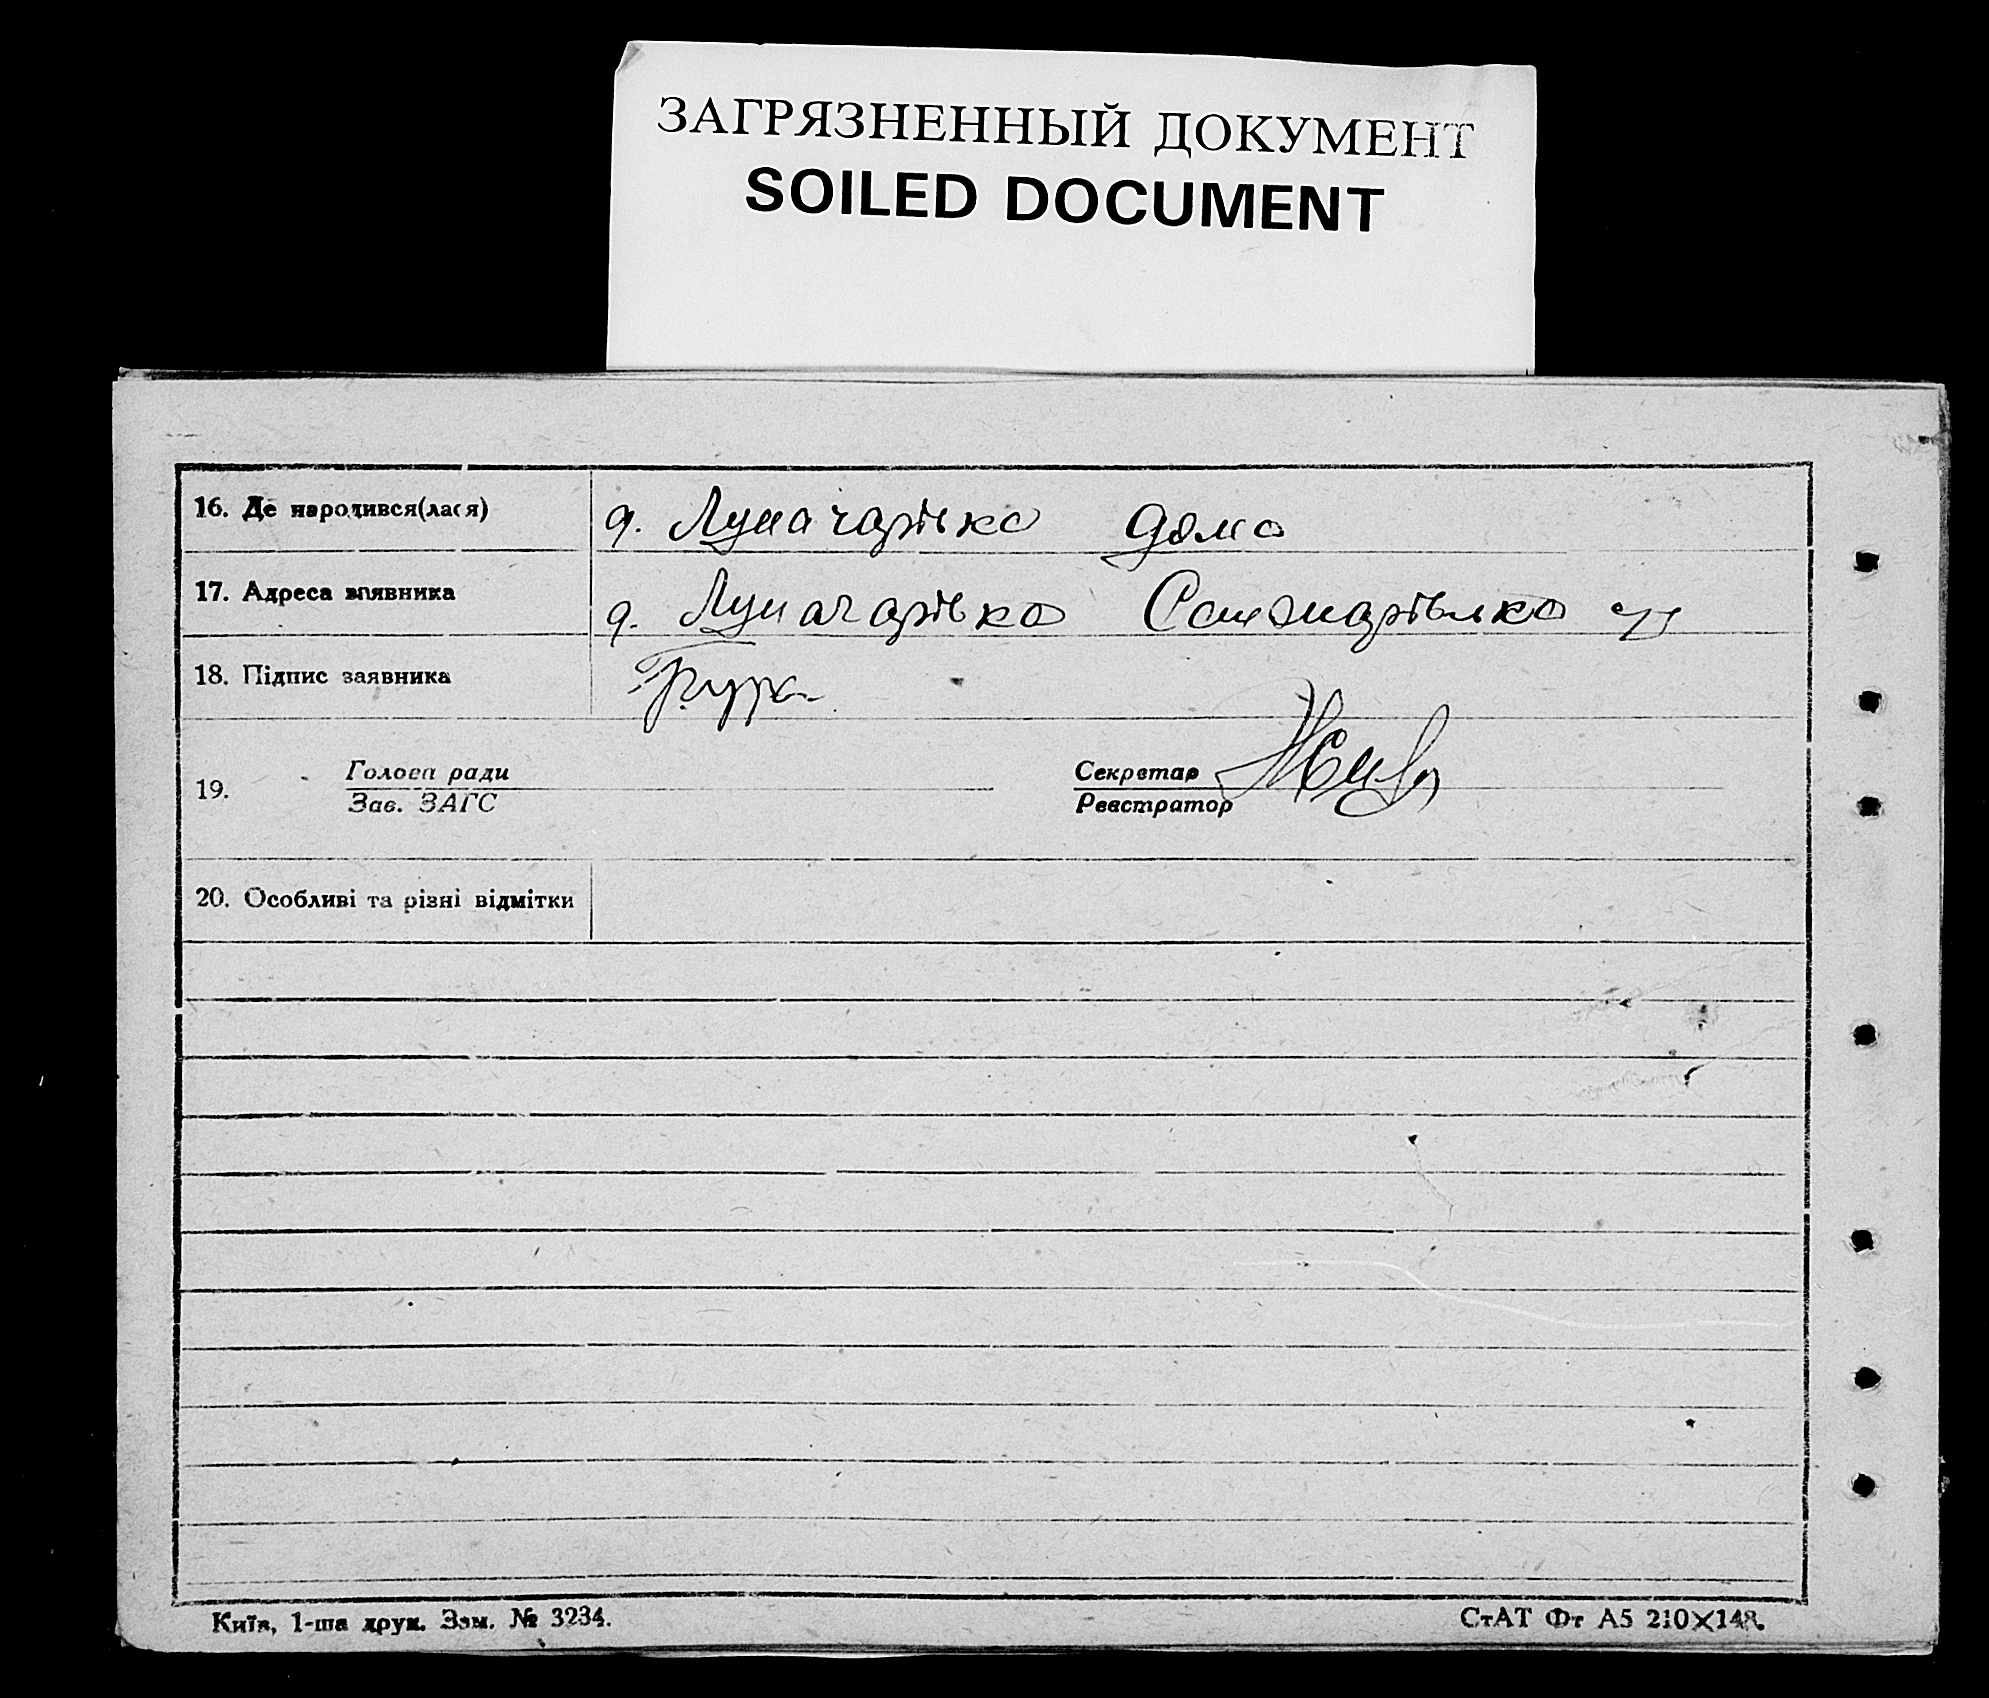 ЗАГРЯЗНЕННЫЙ ДОКУМЕНТ
SOILED DOCUMENT
16. Де народився(лася) д. Луначарівка дома
17. Адреса заявника д. Луначарівка
18. Підпис заявника
19. Голова ради Секретар
Зав. ЗАГС Реєстратор
20. Особливі та різні відмітки
Київ, 1-ша друк. Зам. № 3234. СтАТ Фт А5 210×148.